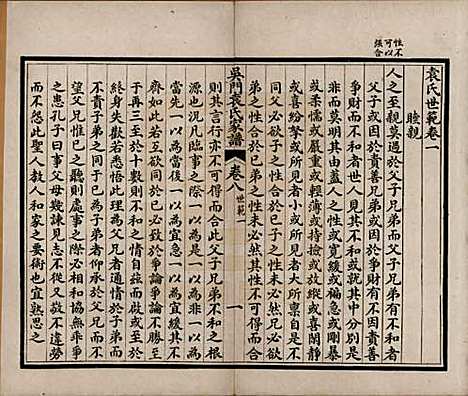 袁氏世範卷一
睦親
性不可以強合
人之至親莫過於父子兄弟而父子兄弟有不和者
父子或因於責善兄弟或因於爭財有不因責善
爭財而不和者世人見其不和或就其中分別是
非而莫明其由蓋人之性或寬緩或褊急或剛暴
或柔懦或嚴重或輕薄或持檢或放縱或喜閒靜
或喜紛拏或所見者小或所見者大所稟自是不
同父必欲子之性合於己子之性未必然兄必欲
弟之性合於己弟之性未必然其性不可得而合
吳門袁氏家譜
卷八
世範一
一
則其言行亦不可得而合此父子兄弟不和之根
源也況凡臨事之際一以為是一以為非一以為
當先一以為當後一以為宜急一以為宜緩其不
齊如此若互欲同於己必致於爭論爭論不勝至
於再三至於十數則不和之情自茲而啟或至於
終身失歡若悉悟此理為父兄者通情於子弟而
不責子弟之同於己為子弟者仰承於父兄而不
望父兄惟己之聽則處事之際必相和協無乖爭
之患孔子曰事父母幾諫見志不從又敬不違勞
而無怨此聖人教人和家之要術也宜熟思之